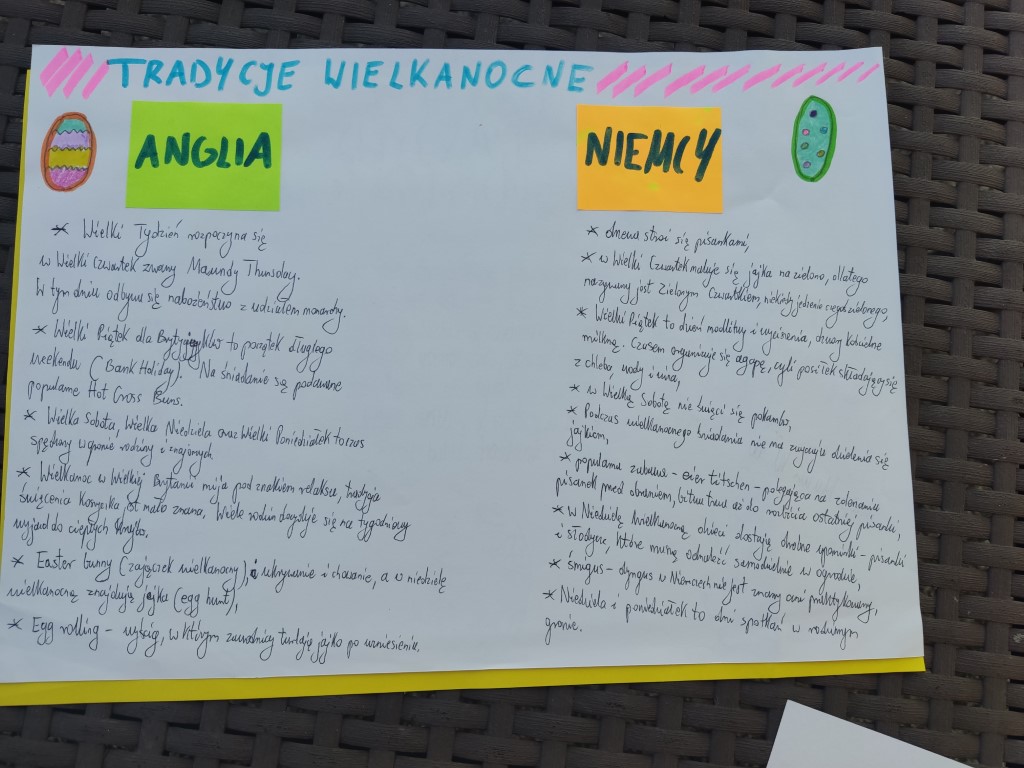 TRADYCJE WIELKANOCNE
ANGLIA
* Wielki Tydzień rozpoczyna się
w Wielki Czwartek zwany Maundy Thursday.
W tym dniu odbywa się nabożeństwo z udziałem monarchy.
* Wielki Piątek dla Brytyjczyków to początek długiego
weekendu (Bank Holiday). Na śniadanie są podawane
popularne Hot Cross Buns.
* Wielka Sobota, Wielka Niedziela oraz Wielki Poniedziałek to czas
spędzany w gronie rodziny i znajomych.
* Wielkanoc w Wielkiej Brytanii mija pod znakiem relaksu, tradycja
święcenia koszyczka jest mało znana. Wiele rodzin decyduje się na tygodniowy
wyjazd do ciepłych krajów.
* Easter bunny (zajączek wielkanocny), ukrywanie i chowanie, a w niedzielę
wielkanocną znajdują jajka (egg hunt),
* Egg rolling - wyścig, w którym zawodnicy turlają jajko po wzniesieniu.
NIEMCY
* drzewa stroi się pisankami,
* w Wielki Czwartek maluje się jajka na zielono, dlatego
nazywany jest Zielonym Czwartkiem, niekiedy jedzenie czegoś zielonego,
* Wielki Piątek to dzień modlitwy i wyciszenia, dzwony kościelne
milkną. Czasem organizuje się agapę, czyli posiłek składający się
z chleba, wody i wina,
* w Wielką Sobotę nie święci się pokarmów,
* Podczas wielkanocnego śniadania nie ma zwyczaju dzielenia się
jajkiem,
* popularna zabawa - eier titschen - polegająca na zderzaniu
pisanek przed obraniem, bitwa trwa aż do rozbicia ostatniej pisanki,
* w Niedzielę Wielkanocną dzieci dostają drobne upominki - pisanki
i słodycze, które muszą odnaleźć samodzielnie w ogrodzie,
* śmigus - dyngus w Niemczech nie jest znany ani praktykowany,
* Niedziela i poniedziałek to dni spotkań w rodzinnym
gronie.